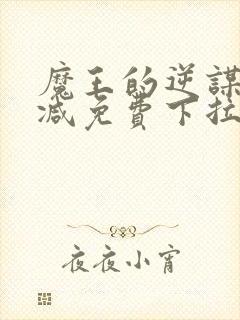 魔王的逆謀
减免費下拉
夜夜小宵